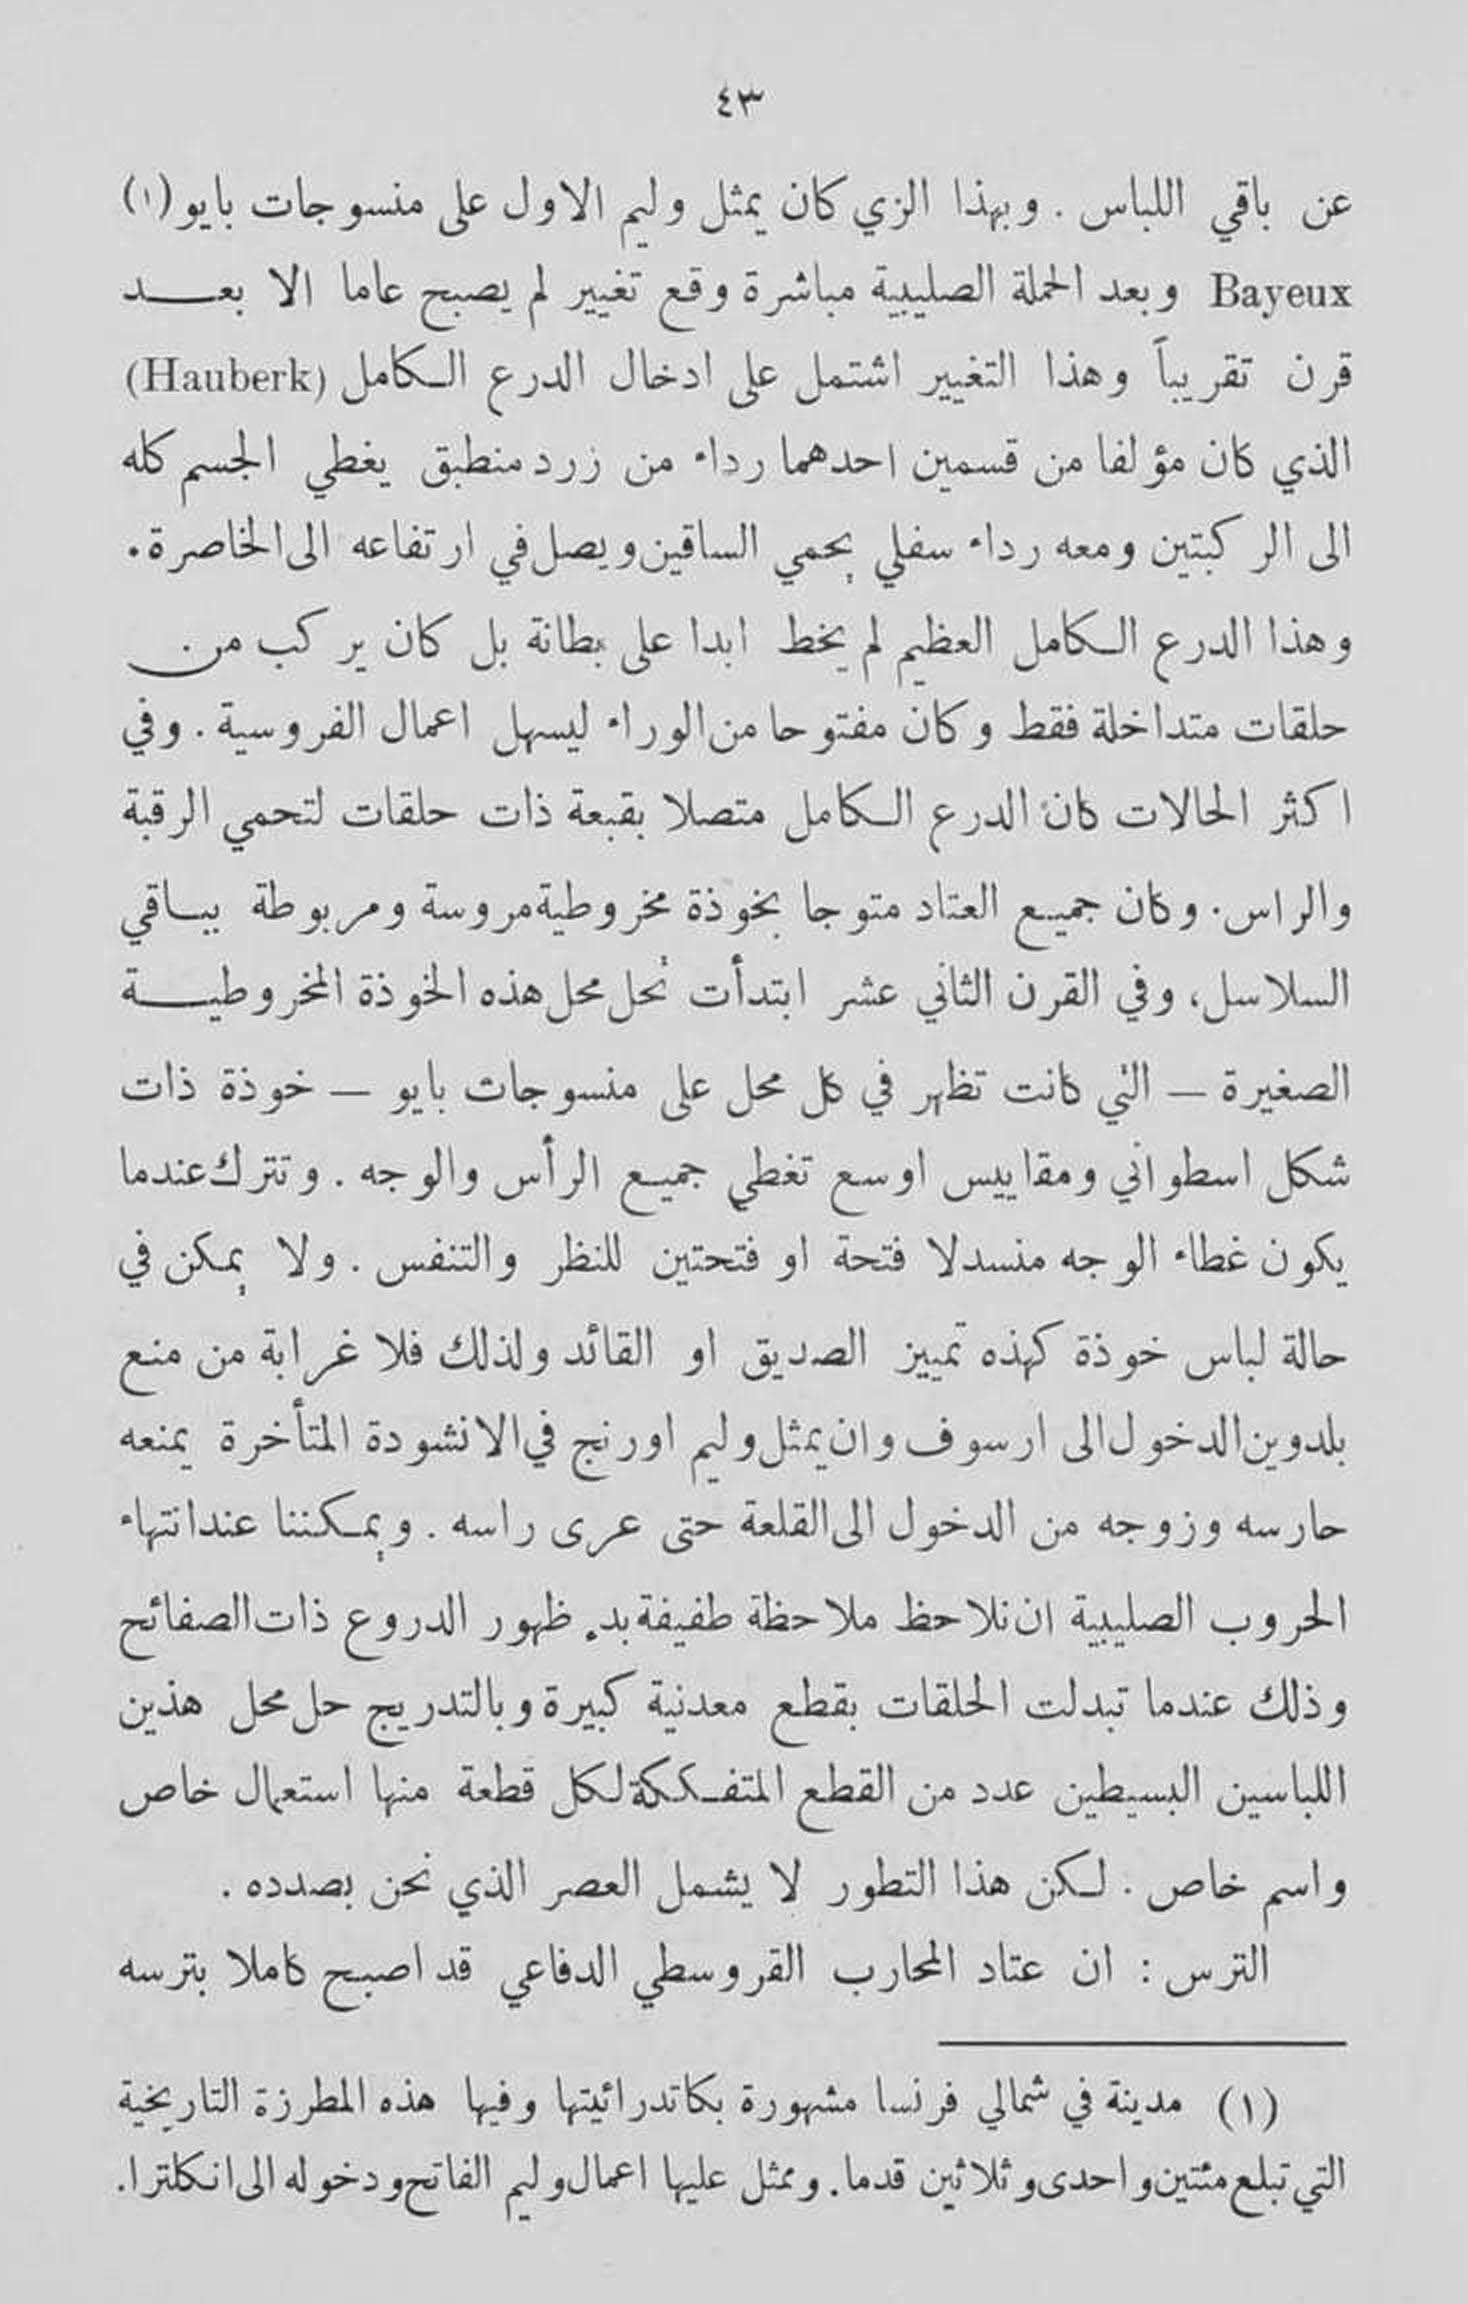 ٤٣
عن باقي اللباس . وبهذا الزي كان يمثل وليم الاول على منسوجات بايو (١)
Bayeux وبعد الحملة الصليبية مباشرة وقع تغيير لم يصبح عاما الا بعد
قرن تقريباً وهذا التغيير اشتمل على ادخال الدرع الكامل (Hauberk)
الذي كان مؤلفا من قسمين احدهما رداء من زرد منطبق يغطي الجسم كله
الى الركبتين ومعه رداء سفلي يحمي الساقين ويصل في ارتفاعه الى الخاصرة .
وهذا الدرع الكامل العظيم لم يخط ابدا على بطانة بل كان يركب من
حلقات متداخلة فقط وكان مفتوحا من الوراء ليسهل اعمال الفروسية . وفي
اكثر الحالات كان الدرع الكامل متصلا بقبعة ذات حلقات لتحمي الرقبة
والراس . وكان جميع العتاد متوجا بخوذة مخروطية مروسة ومربوطة بباقي
السلاسل، وفي القرن الثاني عشر ابتدأت تحل محل هذه الخوذة المخروطية
الصغيرة — التي كانت تظهر في كل محل على منسوجات بايو — خوذة ذات
شكل اسطواني ومقاييس اوسع تغطي جميع الرأس والوجه . وتترك عندما
يكون غطاء الوجه منسدلا فتحة او فتحتين للنظر والتنفس . ولا يمكن في
حالة لباس خوذة كهذه تمييز الصديق او القائد ولذلك فلا غرابة من منع
بلدوين الدخول الى ارسوف وان يمثل وليم اورنج في الانشودة المتأخرة يمنعه
حارسه وزوجه من الدخول الى القلعة حتى عرى راسه . ويمكننا عند انتهاء
الحروب الصليبية ان نلاحظ ملاحظة طفيفة بدء ظهور الدروع ذات الصفائح
وذلك عندما تبدلت الحلقات بقطع معدنية كبيرة وبالتدريج حل محل هذين
اللباسين البسيطين عدد من القطع المتفككة لكل قطعة منها استعمال خاص
واسم خاص . لكن هذا التطور لا يشمل العصر الذي نحن بصدده .
الترس : ان عتاد المحارب القروسطي الدفاعي قد اصبح كاملا بترسه
(١) مدينة في شمالي فرنسا مشهورة بكاتدرائيتها وفيها هذه المطرزة التاريخية
التي تبلغ مئتين واحدى وثلاثين قدما . وممثل عليها اعمال وليم الفاتح ودخوله الى انكلترا.